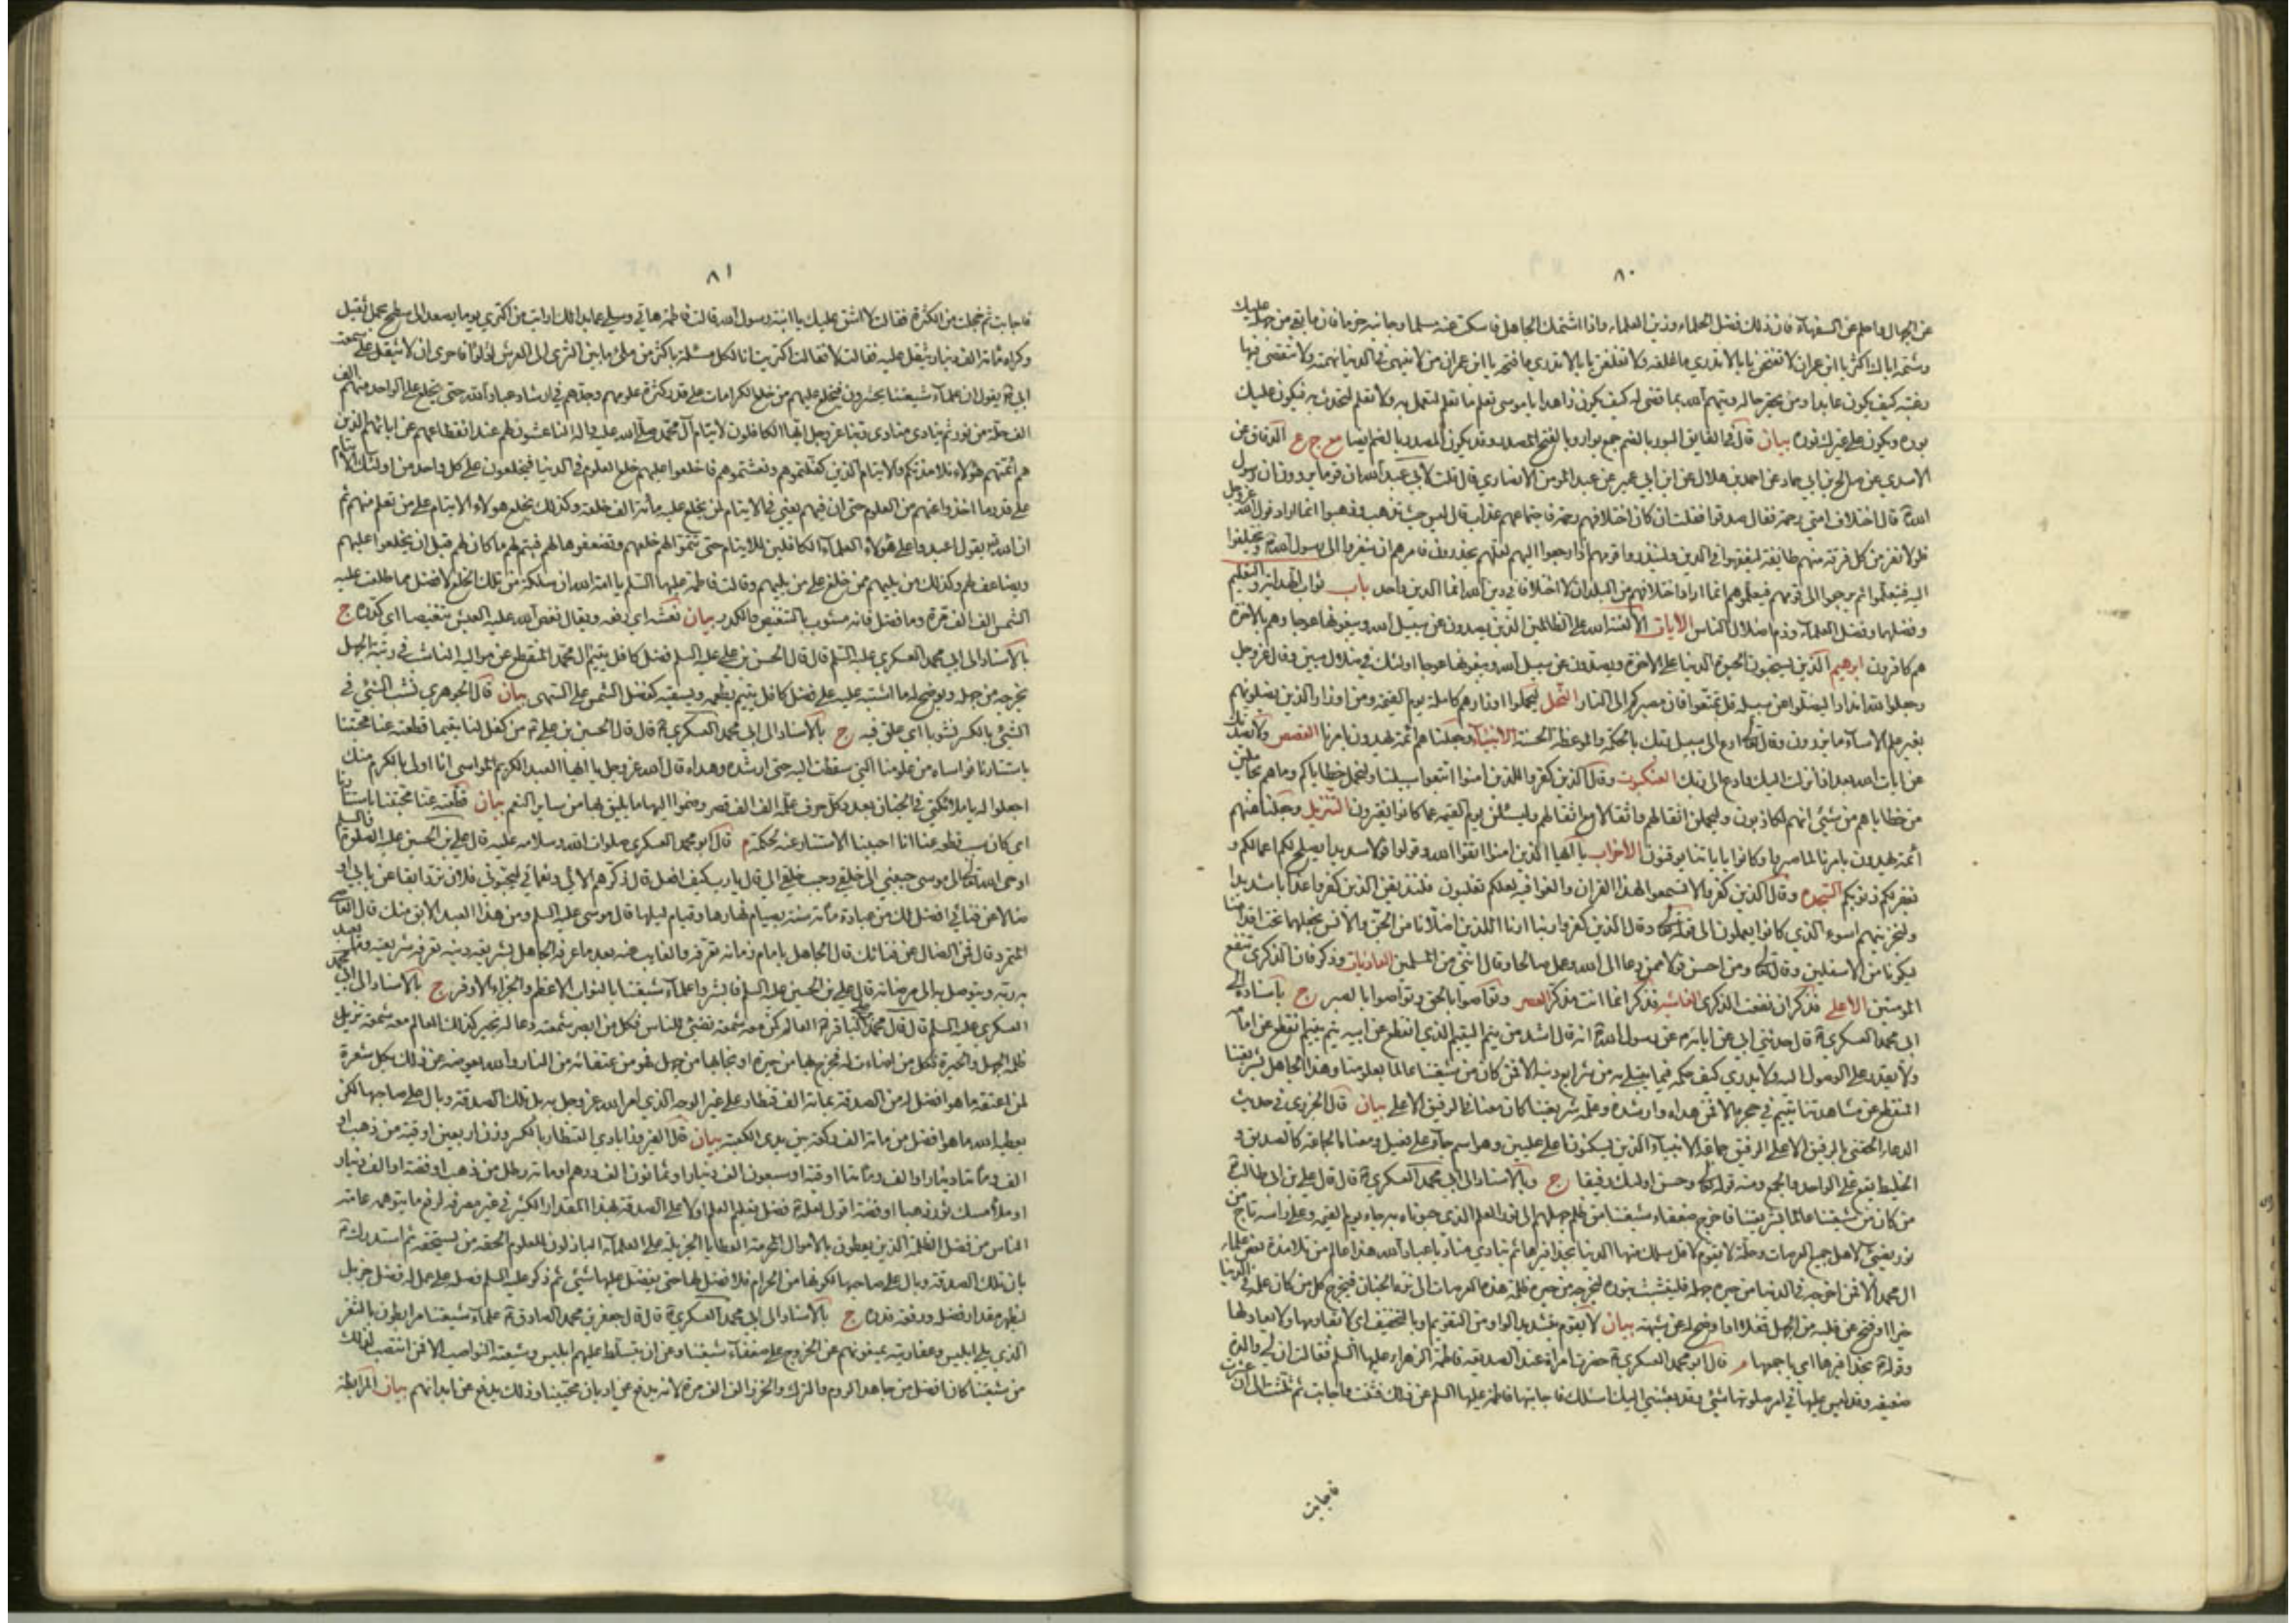 ٨٠
عن الجهال واحلم عن السفهاء فان ذلك فضل الحلماء وزين العلماء واذا شتمك الجاهل فاسكت عنه سلما وجانبه حزما فان ما بقي من جهله عليك
وشتمه اياك اكثر يا ابن عمران لا تفتحن بابا لا تدري ما غلقه ولا تغلقن بابا لا تدري ما فتحه يا ابن عمران من لا ينتهي من الدنيا نهمته ولا تنقضي فيها
رغبته كيف يكون عابدا ومن يحقر حاله ويتهم الله بما قضى له كيف يكون زاهدا يا موسى تعلم ما تعلم لتعمل به ولا تعلم لتحدث به فيكون عليك
بوره ويكون على غيرك نوره بيان قال في الفايق البور بالضم جمع بوار وبالفتح المصدر وقد يكون المصدر بالضم ايضا مع ج ع الدقاق عن
الاسدي عن صالح بن ابي حماد عن احمد بن هلال عن ابن ابي عمير عن عبد المؤمن الانصاري قال قلت لابي عبد الله ان قوما يروون ان رسول
الله قال اختلاف امتي رحمة فقال صدقوا فقلت ان كان اختلافهم رحمة فاجتماعهم عذاب قال ليس حيث تذهب وذهبوا انما اراد قول الله عز وجل
فلولا نفر من كل فرقة منهم طائفة ليتفقهوا في الدين ولينذروا قومهم اذا رجعوا اليهم لعلهم يحذرون فامرهم ان ينفروا الى رسول الله ويختلفوا
اليه فيتعلموا ثم يرجعوا الى قومهم فيعلموهم انما اراد اختلافهم من البلدان لا اختلافا في دين الله انما الدين واحد باب ثواب الهداية والتعليم
وفضلهما وفضل العلماء وذم اضلال الناس الايات الا لعنة الله على الظالمين الذين يصدون عن سبيل الله ويبغونها عوجا وهم بالاخرة
هم كافرون ابرهيم الذين يستحبون الحيوة الدنيا على الاخرة ويصدون عن سبيل الله ويبغونها عوجا اولئك في ضلال مبين وقال عز وجل
وجعلوا لله اندادا ليضلوا عن سبيله قل تمتعوا فان مصيركم الى النار النحل ليحملوا اوزارهم كاملة يوم القيمة ومن اوزار الذين يضلونهم
بغير علم الا ساء ما يزرون وقال ادع الى سبيل ربك بالحكمة والموعظة الحسنة الانبياء وجعلناهم ائمة يهدون بامرنا القصص ولا يصدنك
عن ايات الله بعد اذ انزلت اليك وادع الى ربك العنكبوت وقال الذين كفروا للذين امنوا اتبعوا سبيلنا ولنحمل خطاياكم وما هم بحاملين
من خطاياهم من شيء انهم لكاذبون وليحملن اثقالهم واثقالا مع اثقالهم وليسئلن يوم القيمة عما كانوا يفترون التنزيل وجعلنا منهم
ائمة يهدون بامرنا لما صبروا وكانوا باياتنا يوقنون الاحزاب يا ايها الذين امنوا اتقوا الله وقولوا قولا سديدا يصلح لكم اعمالكم و
يغفر لكم ذنوبكم السجدة وقال الذين كفروا لا تسمعوا لهذا القران والغوا فيه لعلكم تغلبون فلنذيقن الذين كفروا عذابا شديدا
ولنجزينهم اسوء الذي كانوا يعملون الى قوله وقال الذين كفروا ربنا ارنا اللذين اضلانا من الجن والانس نجعلهما تحت اقدامنا
ليكونا من الاسفلين وقال ومن احسن قولا ممن دعا الى الله وعمل صالحا وقال انني من المسلمين الذاريات وذكر فان الذكرى تنفع
المؤمنين الاعلى فذكر ان نفعت الذكرى الغاشية فذكر انما انت مذكر العصر وتواصوا بالحق وتواصوا بالصبر ج باسناده الى
ابي محمد العسكري قال حدثني ابي عن ابائه عن رسول الله انه قال اشد من يتم اليتيم الذي انقطع عن ابيه يتم يتيم انقطع عن امامه
ولا يقدر على الوصول اليه ولا يدري كيف حكمه فيما يبتلي به من شرايع دينه الا فمن كان من شيعتنا عالما بعلومنا وهذا الجاهل بشريعتنا
المنقطع عن مشاهدتنا يتيم في حجره الا فمن هداه وارشده وعلمه شريعتنا كان معنا في الرفيق الاعلى بيان قال الجزري في حديث
الدعاء الحقني بالرفيق الاعلى الرفيق جماعة الانبياء الذين يسكنون اعلى عليين وهو اسم جاء على فعيل ومعناه الجماعة كالصديق و
الخليط يقع على الواحد والجمع ومنه قوله وحسن اولئك رفيقا ج وبالاسناد الى ابي محمد العسكري قال قال علي بن ابي طالب
من كان من شيعتنا عالما بشريعتنا فاخرج ضعفاء شيعتنا من ظلمة جهلهم الى نور العلم الذي حبوناه به جاء يوم القيمة وعلى راسه تاج من
نور يضيء لاهل جميع العرصات وحلة لا يقوم لاقل سلك منها الدنيا بحذافيرها ثم ينادي مناد يا عباد الله هذا عالم من تلامذة بعض علماء
ال محمد الا فمن اخرجه في الدنيا من حيرة جهله فليتشبث بنوره ليخرجه من حيرة ظلمة هذه العرصات الى نزه الجنان فيخرج كل من كان علمه في الدنيا
خيرا او فتح عن قلبه من الجهل قفلا او اوضح له عن شبهة بيان لا يقوم بتشديد الواو من التقويم وبالتخفيف اي لا يقاومها ولا يعادلها
وقوله بحذافيرها اي باجمعها م قال ابو محمد العسكري حضرت امراة عند الصديقة فاطمة الزهراء عليها السلم فقالت ان لي والدة
ضعيفة وقد لبس عليها في امر صلوتها شيء وقد بعثتني اليك اسئلك فاجابتها فاطمة عليها السلم عن ذلك فثنت فاجابت ثم ثلثت الى ان عشرت
فاجابت
٨١
فاجابت ثم خجلت من الكثرة فقالت لا اشق عليك يا ابنة رسول الله قالت فاطمة هاتي وسلي عما بدا لك ارايت من اكتري يوما يصعد الى سطح بحمل ثقيل
وكراه مائة الف دينار يثقل عليه فقالت لا فقالت اكتريت انا لكل مسئلة باكثر من ملء ما بين الثرى الى العرش لؤلؤا فاحرى ان لا يثقل علي سمعت
ابي يقول ان علماء شيعتنا يحشرون فيخلع عليهم من خلع الكرامات على قدر كثرة علومهم وجدهم في ارشاد عباد الله حتى يخلع على الواحد منهم الف
الف حلة من نور ثم ينادي منادي ربنا عز وجل ايها الكافلون لايتام آل محمد صلى الله عليه واله الناعشون لهم عند انقطاعهم عن ابائهم الذين
هم ائمتهم هؤلاء تلامذتكم والايتام الذين كفلتموهم ونعشتموهم فاخلعوا عليهم خلع العلوم في الدنيا فيخلعون على كل واحد من اولئك الايتام
على قدر ما اخذوا عنهم من العلوم حتى ان فيهم يعني في الايتام لمن يخلع عليه مائة الف خلعة وكذلك يخلع هؤلاء الايتام على من تعلم منهم ثم
ان الله يقول اعيدوا على هؤلاء العلماء الكافلين للايتام حتى تتموا لهم خلعهم وتضعفوها لهم فيتم لهم ما كان لهم قبل ان يخلعوا عليهم
ويضاعف لهم وكذلك من يليهم ممن خلع على من يليهم وقالت فاطمة عليها السلم يا امة الله ان سلكة من تلك الخلع لافضل مما طلعت عليه
الشمس الف الف مرة وما فضل فانه مشوب بالتنغيص والكدر بيان نعشه اي رفعه ويقال نغص الله عليه العيش تنغيصا اي كدره ج
بالاسناد الى ابي محمد العسكري عليه السلم قال قال الحسن بن علي عليه السلم فضل كافل يتيم ال محمد المنقطع عن مواليه الناشب في رتبة الجهل
يخرجه من جهله ويوضح له ما اشتبه عليه على فضل كافل يتيم يطعمه ويسقيه كفضل الشمس على السهى بيان قال الجوهري نشب الشيء في
الشيء بالكسر نشوبا اي علق فيه ج بالاسناد الى ابي محمد العسكري قال قال الحسين بن علي من كفل لنا يتيما قطعته عنا محبتنا
باستتارنا فواساه من علومنا التي سقطت اليه حتى ارشده وهداه قال الله عز وجل يا ايها العبد الكريم المواسي انا اولى بالكرم منك
اجعلوا له يا ملائكتي في الجنان بعدد كل حرف علمه الف الف قصر وضموا اليها ما يليق بها من ساير النعم بيان قطعته عنا محبتنا باستتارنا
اي كان سبب قطعه عنا انا احببنا الاستتار عنه لحكمة م قال ابو محمد العسكري صلوات الله وسلامه عليه قال علي بن الحسين عليه الصلوة والسلم
اوحى الله الى موسى حببني الى خلقي وحبب خلقي الي قال يا رب كيف افعل قال ذكرهم الائي ونعمائي ليحبوني فلان ترد ابقا عن بابي او
ضالا عن فنائي افضل لك من عبادة مائة سنة بصيام نهارها وقيام ليلها قال موسى عليه السلم ومن هذا العبد الابق منك قال العاصي
المتمرد قال فمن الضال عن فنائك قال الجاهل بامام زمانه تعرفه والغايب عنه بعد ما عرفه الجاهل بشريعة دينه تعرفه شريعته وما يعبد
به ربه ويتوصل به الى مرضاته قال علي بن الحسين عليه السلم فابشروا علماء شيعتنا بالثواب الاعظم والجزاء الاوفر ج بالاسناد الى ابي محمد
العسكري عليه السلم قال قال محمد بن علي الباقر العالم كمن معه شمعة تضيء للناس فكل من ابصر شمعته دعا له بخير كذلك العالم معه شمعة تزيل
ظلمة الجهل والحيرة فكل من اضاءت له فخرج بها من حيرة او نجا بها من جهل فهو من عتقائه من النار والله يعوضه عن ذلك بكل شعرة
لمن اعتقه ما هو افضل له من الصدقة بمائة الف قنطار على غير الوجه الذي امر الله عز وجل به بل تلك الصدقة وبال على صاحبها لكن
يعطيه الله ما هو افضل من مائة الف ركعة بين يدي الكعبة بيان قال الفيروزابادي القنطار بالكسر وزن اربعين اوقية من ذهب او
الف ومائتا دينار او الف ومائتا اوقية او سبعون الف دينار او ثمانون الف درهم او مائة رطل من ذهب او فضة او الف دينار
او ملأ مسك ثور ذهبا او فضة اقول لعله فضل تعليم العلم اولا على الصدقة بهذا المقدار الكثير في غير مصرفه لرفع ما يتوهمه عامة
الناس من فضل الظلمة الذين يعطون بالاموال المحرمة العطايا الجزيلة على العلماء الباذلين للعلوم الحقة من يستحقه ثم استدرك
بان تلك الصدقة وبال على صاحبها لكونها من الحرام فلا فضل لها حتى يفضل عليها شيء ثم ذكر عليه السلم فضله على عمل له فضل جزيل
ليظهر مقدار فضله ورفعة قدره ج بالاسناد الى ابي محمد العسكري قال قال جعفر بن محمد الصادق علماء شيعتنا مرابطون بالثغر
الذي يلي ابليس وعفاريته يمنعونهم عن الخروج على ضعفاء شيعتنا وعن ان يتسلط عليهم ابليس وشيعته النواصب الا فمن انتصب لذلك
من شيعتنا كان افضل ممن جاهد الروم والترك والخزر الف الف مرة لانه يدفع عن اديان محبينا وذلك يدفع عن ابدانهم بيان المرابطة